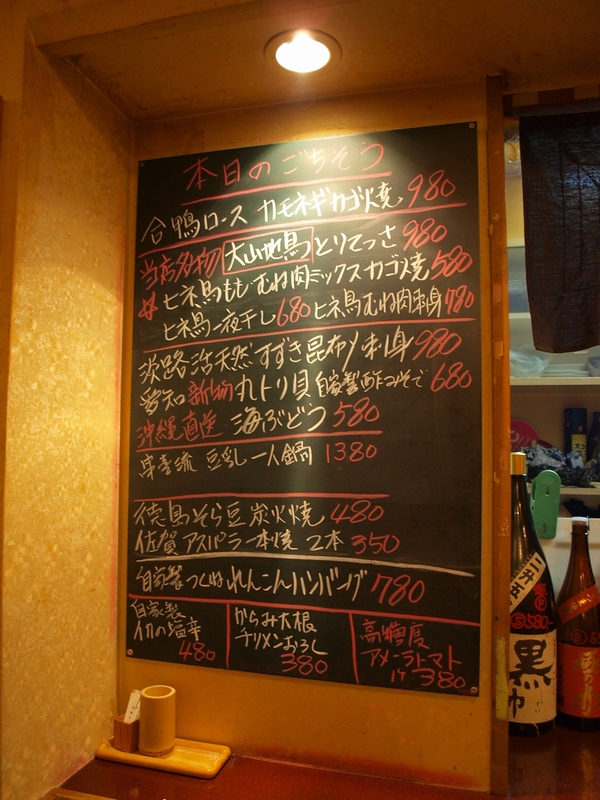 本日のごちそう
合鴨ロース カモネギカゴ焼 980
当店名物 大山地鳥 とりてっさ 980
ヒネ鳥もも むね肉ミックスカゴ焼 580
ヒネ鳥一夜干し 680 ヒネ鳥むね肉刺身 780
淡路活天然すずき昆布〆刺身 980
愛知 新物 丸トリ貝 自家製酢みそで 680
沖縄直送 海ぶどう 580
串喜流 豆乳一人鍋 1380
徳島そら豆炭火焼 480
佐賀アスパラ一本焼 2本 350
自家製つくねれんこんハンバーグ 780
自家製
イカの塩辛
480
からみ大根
チリメンおろし
380
高糖度
アメーラトマト
1ケ 380
黒